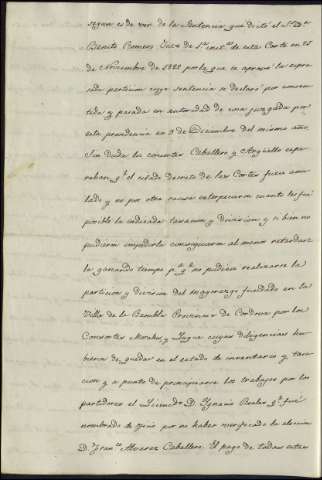 segun es de ver de la Sentencia que dictó el S.r D.n
Benito Romero Juez de 1.a inst.a de esta Corte en 25
de Noviembre de 1822 por la que se aprovó la espre
sada particion cuya sentencia se declaró por consen
tida y pasada en autoridad de cosa juzgada por
esta providencia en 9 de Diciembre del mismo año.
Sin duda los consortes Caballero y Argüello espe
raban q.e el citado Decreto de las Cortes fuera anu
lado y no por otra causa entorpecieron cuanto les fué
posible la indicada tasacion y division y si bien no
pudieron impedirla consiguieron al menos retardar
la ganando tiempo p.a q.e no pudiera realizarse la
particion y division del mayorazgo fundado en la
Villa de la Rambla Provincia de Cordova por los
Consortes Morales y Luque cuyas diligencias hu
bieron de quedar en el estado de inventarios y tasa
cion y a punto de principiarse los trabajos por los
partidores el Licenciado D. Ignacio q.e fué
nombrado de oficio por no haber verificado la eleccion
D. Fran.co Alvarez Caballero. El pago de todas estas